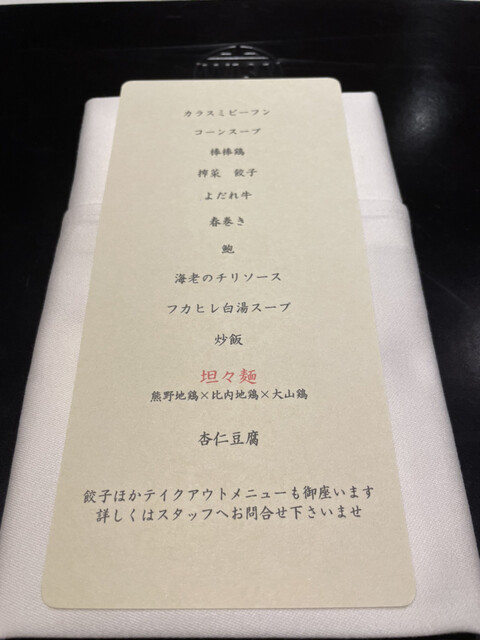 カラスミビーフン
コーンスープ
棒棒鶏
搾菜　餃子
よだれ牛
春巻き
鮑
海老のチリソース
フカヒレ白湯スープ
炒飯
坦々麺
熊野地鶏×比内地鶏×大山鶏
杏仁豆腐
餃子ほかテイクアウトメニューも御座います
詳しくはスタッフへお問合せ下さいませ